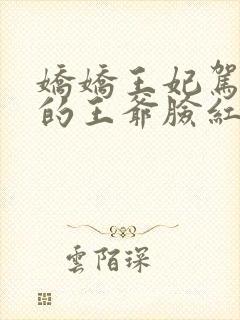 嬌嬌王妃駕
的王爺臉紅
雲陌琛